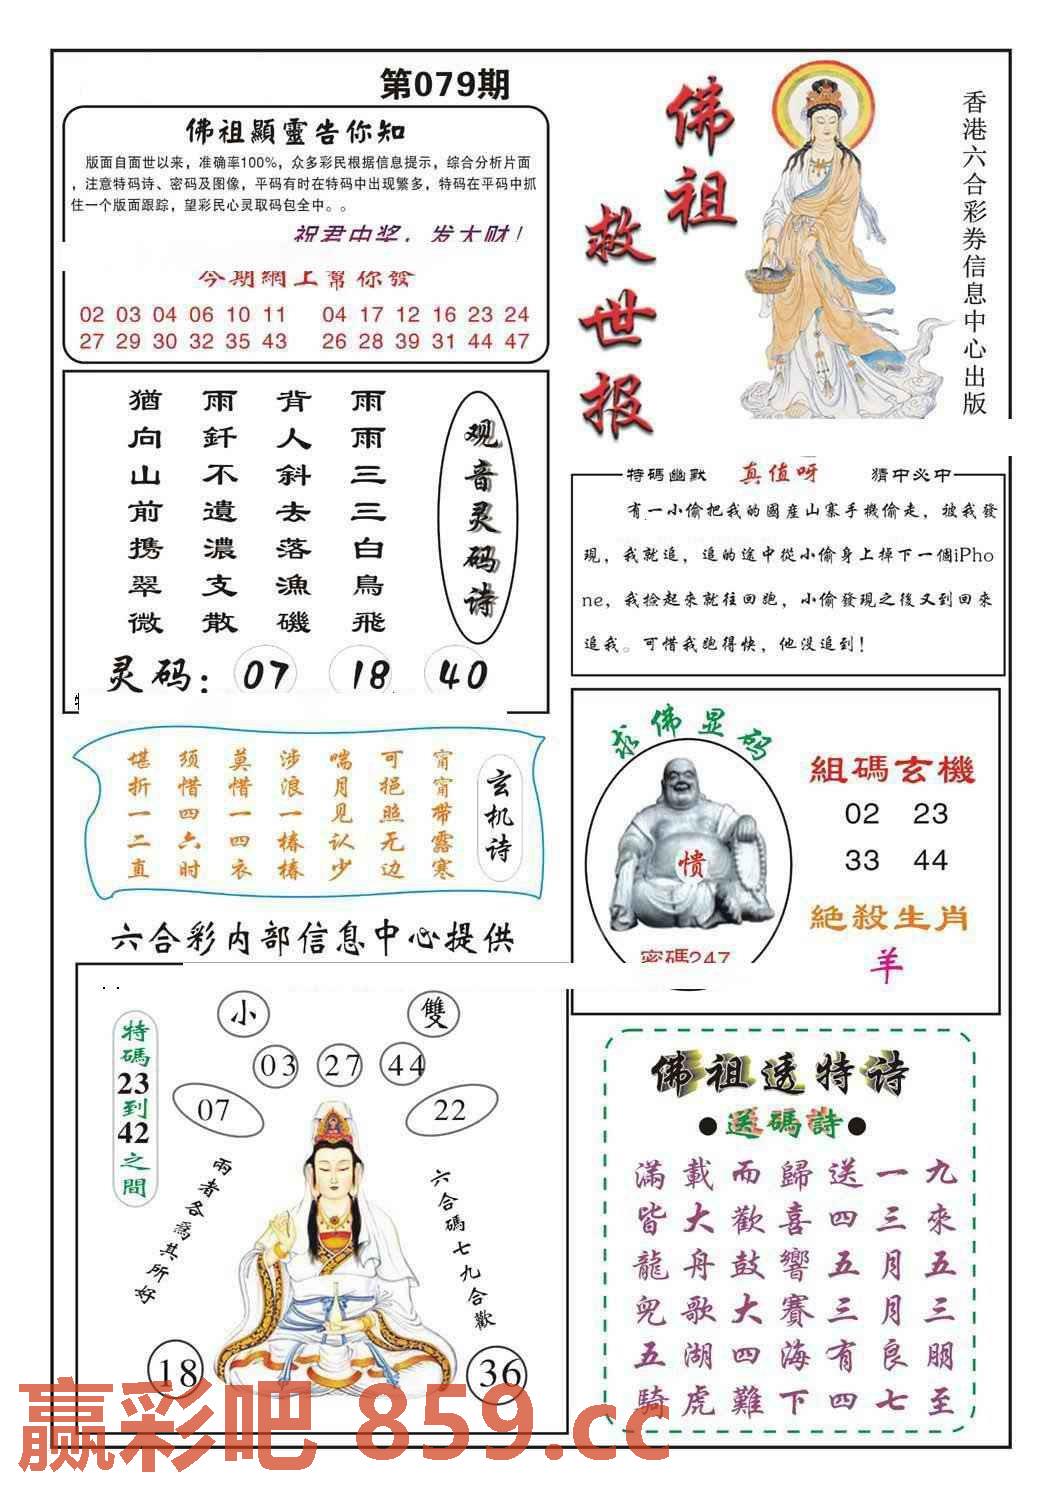 第079期
佛祖顯靈告你知
版面自面世以来，准确率100%，众多彩民根据信息提示，综合分析片面
，注意特码诗、密码及图像，平码有时在特码中出现繁多，特码在平码中抓
住一个版面跟踪，望彩民心灵取码包全中。。
祝君中奖，发大财！
今期網上幫你發
02 03 04 06 10 11 04 17 12 16 23 24
27 29 30 32 35 43 26 28 39 31 44 47
佛祖
救世报
香港六合彩券信息中心出版
观音灵码诗
雨雨三三白鳥飛
背人斜去落漁磯
雨釬不遺濃支散
猶向山前携翠微
灵码：07 18 40
特碼幽默 真值呀 猜中必中
有一小偷把我的國產山寨手機偷走，被我發
現，我就追，追的途中從小偷身上掉下一個iPho
ne，我捡起來就往回跑，小偷發現之後又到回來
追我。可惜我跑得快，他没追到！
玄机诗
甯甯带露寒
可挹照无边
喘月见认少
涉浪一椿椿
莫惜一四衣
须惜四六时
堪折一二直
六合彩内部信息中心提供
求佛显码
愦
密碼247
組碼玄機
02 23
33 44
絕殺生肖
羊
特碼23到42之間
小 雙
03 27 44
07 22
兩者各為其所好
六合碼七九合歡
18 36
佛祖透特诗
●送碼詩●
滿載而歸送一九
皆大歡喜四三來
龍舟鼓響五月五
兜歌大賽三月三
五湖四海有良朋
騎虎難下四七至
赢彩吧 859.cc